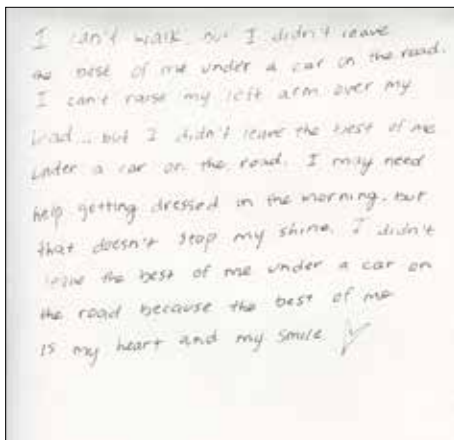 I can't walk, but I didn't leave
the best of me under a car on the road.
I can't raise my left arm over my
head... but I didn't leave the best of me
under a car on the road. I may need
help getting dressed in the morning, but
that doesn't stop my shine. I didn't
leave the best of me under a car on
the road because the best of me
is my heart and my smile